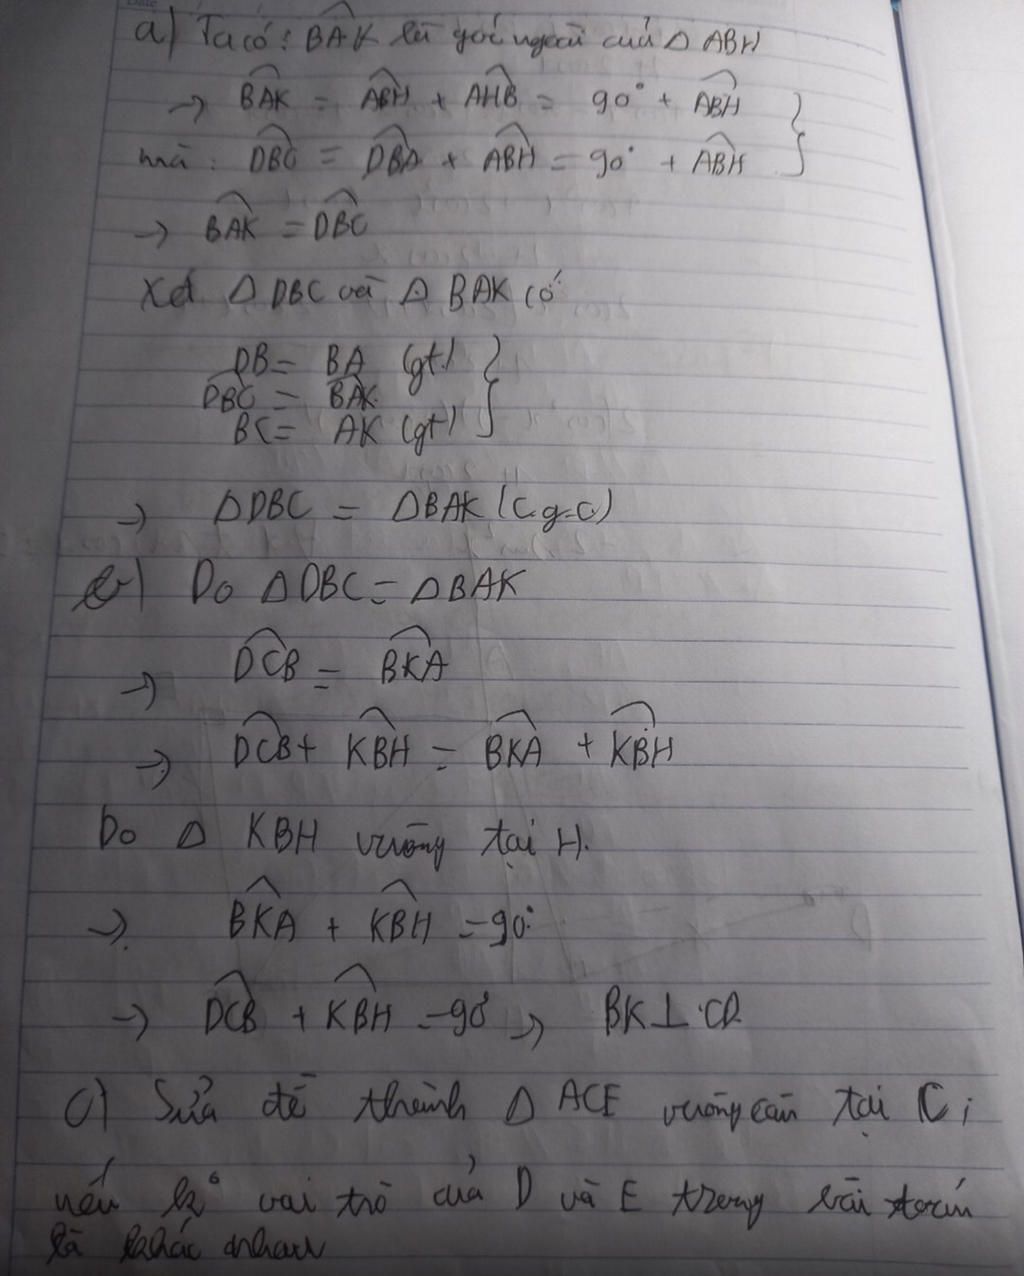 a) Ta có: BAK là góc ngoài của Δ ABH
→ BAK = ABH + AHB = 90° + ABH
mà: DBC = DBA + ABH = 90° + ABH
→ BAK = DBC
Xét Δ DBC và Δ BAK có
DB = BA (gt)
DBC = BAK
BC = AK (gt)
→ ΔDBC = ΔBAK (c.g.c)
b) Do ΔDBC = ΔBAK
→ DCB = BKA
→ DCB + KBH = BKA + KBH
Do Δ KBH vuông tại H.
→ BKA + KBH = 90°
→ DCB + KBH = 90° → BK ⊥ CD
c) Sửa đề thành Δ ACE vuông cân tại C;
nếu ko vai trò của D và E trong bài toán
là khác nhau